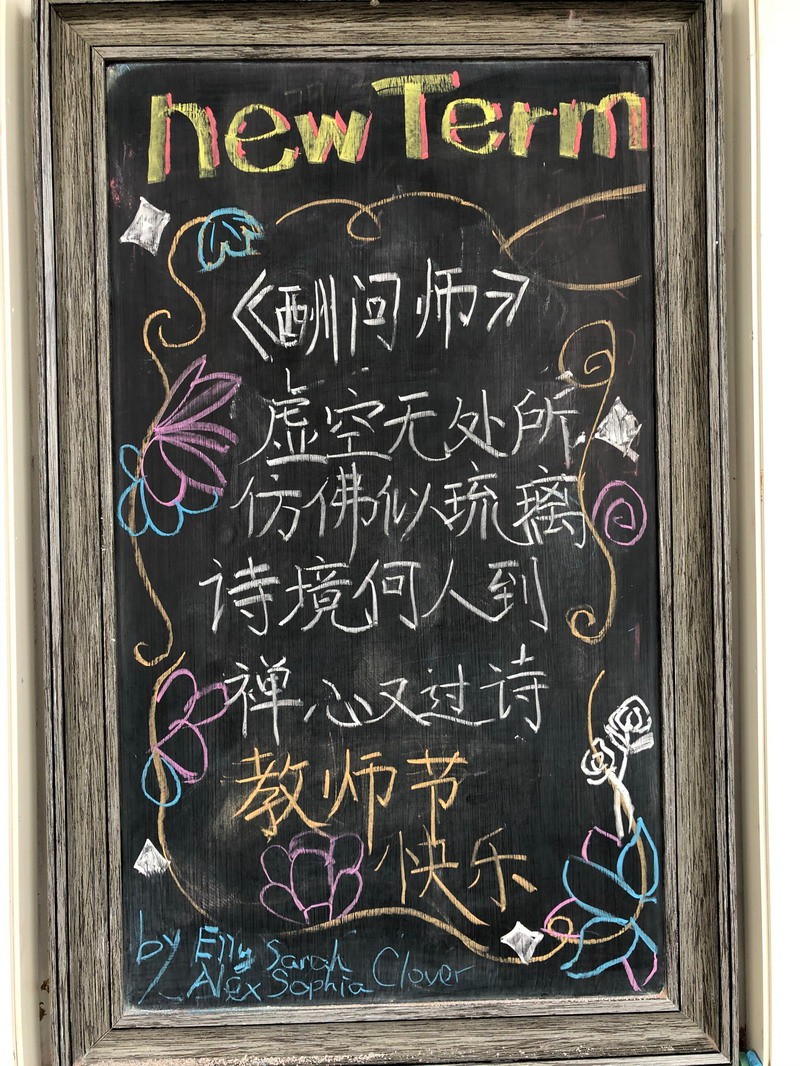 new Term
《酬问师》
虚空无处所
仿佛似琉璃
诗境何人到
禅心又过诗
教师节
快乐
by Elly Sarah Clover
Alex Sophia